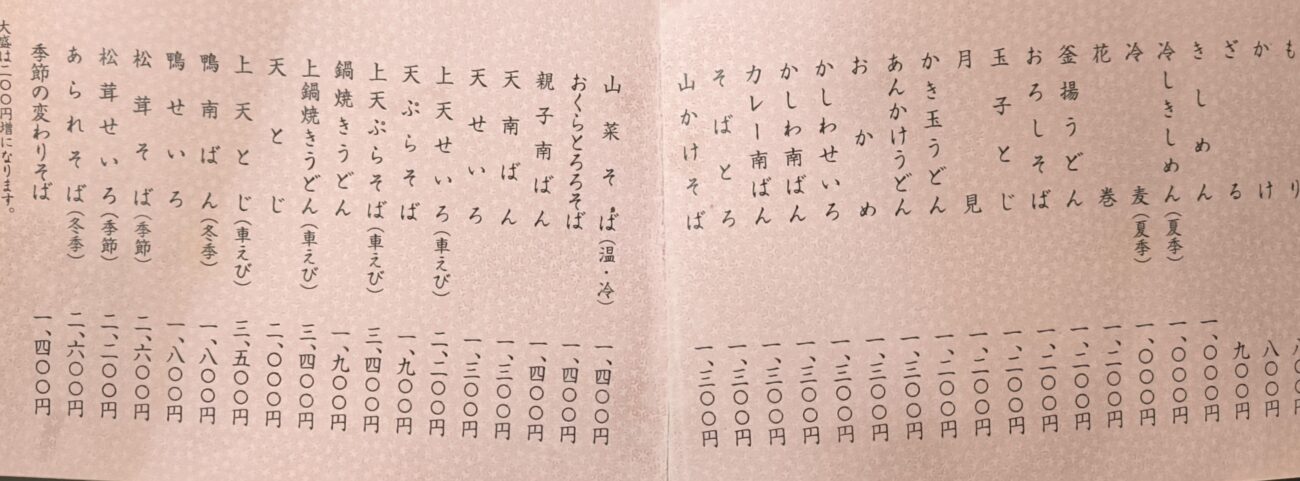 もり
かけ 八〇〇円
ざる 九〇〇円
きしめん 一、〇〇〇円
冷しきしめん(夏季) 一、〇〇〇円
冷麦(夏季) 一、〇〇〇円
花巻 一、二〇〇円
釜揚うどん 一、二〇〇円
おろしそば 一、二〇〇円
玉子とじ 一、二〇〇円
月見 一、二〇〇円
かき玉うどん 一、二〇〇円
あんかけうどん 一、三〇〇円
おかめ 一、三〇〇円
かしわせいろ 一、三〇〇円
かしわ南ばん 一、三〇〇円
カレー南ばん 一、三〇〇円
そばとろ 一、三〇〇円
山かけそば 一、三〇〇円
山菜そば(温・冷) 一、四〇〇円
おくらとろろそば 一、四〇〇円
親子南ばん 一、四〇〇円
天南ばん 一、三〇〇円
天せいろ 一、三〇〇円
上天せいろ(車えび) 二、二〇〇円
天ぷらそば 一、九〇〇円
上天ぷらそば(車えび) 三、四〇〇円
鍋焼きうどん 一、九〇〇円
上鍋焼きうどん(車えび) 三、四〇〇円
天とじ 二、〇〇〇円
上天とじ(車えび) 三、五〇〇円
鴨南ばん(冬季) 一、八〇〇円
鴨せいろ 一、八〇〇円
松茸そば(季節) 二、六〇〇円
松茸せいろ(季節) 二、二〇〇円
あられそば(冬季) 二、六〇〇円
季節の変わりそば 一、四〇〇円
大盛は二〇〇円増になります。